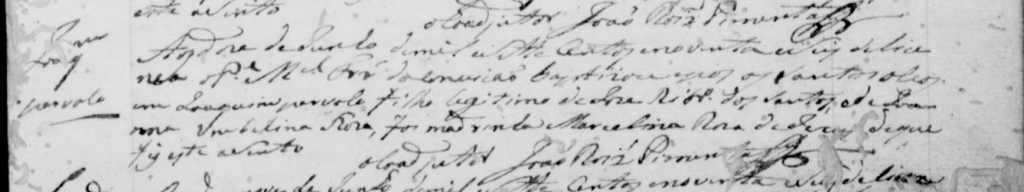 este asento
o Coadjutor João Roiz Pimenta
Joaq.m
parvolo
Aos doze de Junho de mil e sette centos e noventa e seis de lice
nca o P.e M.el Frr.a da Conceicão baptizou e pos os santos oleos
em Joaquim parvolo, filho legitimo de Joze Ribr.o dos Santos, e de Joa
nna Rosa, foi madrinha Marcelina Rosa de Jezus de que
fis este asento
o Coadjutor João Roiz Pimenta
de Junho de mil e sette centos e noventa e seis de licen